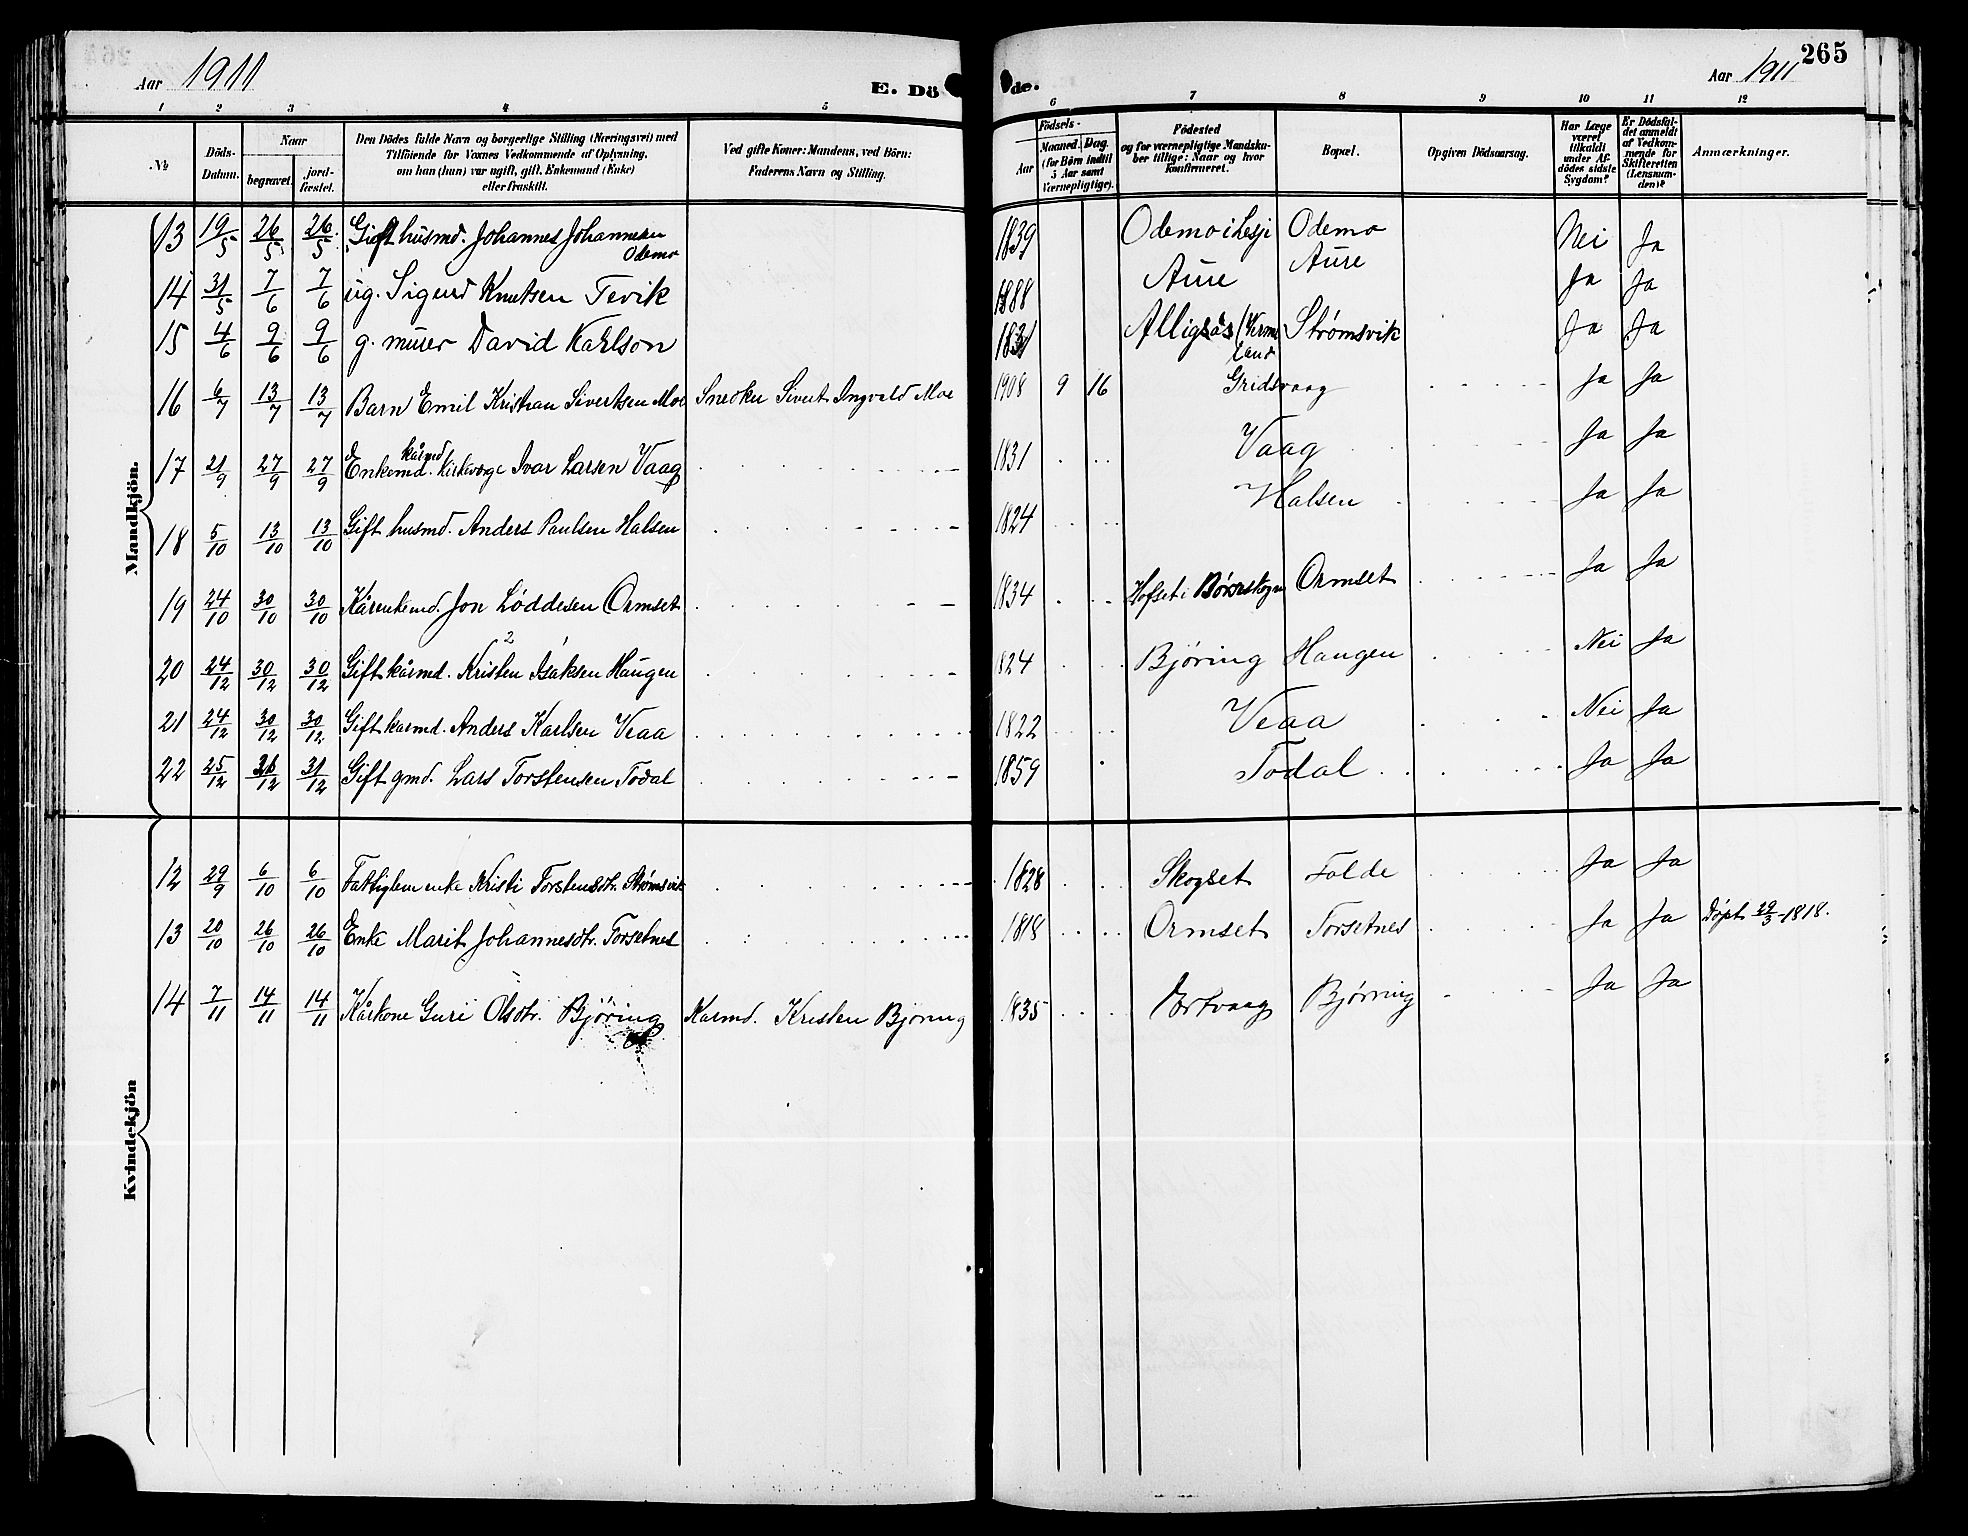 Aar 1911 E. Döde. Aar 1911 265
1 2 3 4 5 6 7 8 9 10 11 12
№ Döds-Datum. Naar begravet. jordfæstet. Den Dödes fulde Navn og borgerlige Stilling (Næringsvei) med Tilföiende for Voxnes Vedkommende af Oplysning, om han (hun) var ugift, gift, Enkemand (Enke) eller fraskilt. Ved gifte Koner: Mandens, ved Börn: Faderens Navn og Stilling. Födsels- Aar Maaned. Dag. (for Börn indtil 5 Aar samt Værnepligtige). Födested og for værnepligtige Mandskaber tillige: Naar og hvor konfirmeret. Bopæl. Opgiven Dödsaarsag. Har Læge været tilkaldt under Afdödes sidste Sygdom? Er Dödsfaldet anmeldt af Vedkommende for Skifteretten (Lensmanden)? Anmærkninger.
Mandkjön.
13 19/5 26/5 26/5 Gift husmd. Johannes Johannesen Odemo 1839 Odemo i Lesje Odemo Nei Ja
14 31/5 7/6 7/6 ug. Sigurd Knutsen Tevik 1888 Aure Aure Ja Ja
15 4/6 9/6 9/6 g. murer David Karlson 1831 (Vermland) Strømsvik Ja Ja
16 6/7 13/7 13/7 Barn Emil Kristian Sivertsen Moe Snedker Sivert Ingvald Moe 1908 9 16 Gridsvaag Ja Ja
17 21/9 27/9 27/9 Enkemd. kårmd. Kirkeverge Ivar Larsen Vaag 1831 Vaag Ja Ja
18 5/10 13/10 13/10 Gift husmd. Anders Paulsen Halsen 1824 Halsen Ja Ja
19 24/10 30/10 30/10 Kårenkemd. Jon Løddesen Ormset 1834 Hofset i Børsskogn Ormset Ja Ja
20 24/12 30/12 30/12 Gift 2 kårmd. Kristen Isaksen Haugen 1824 Bjøring Haugen Nei Ja
21 24/12 30/12 30/12 Gift karmd. Anders Karlsen Veaa 1822 Veaa Nei Ja
22 25/12 31/12 31/12 Gift gmd. Lars Torstensen Todal 1859 Todal Ja Ja
Kvindekjön
12 29/9 6/10 6/10 Fattiglem enke Kristi Torstensdtr. Strømsvik 1828 Skogset Folde Ja Ja
13 20/10 26/10 26/10 Enke Marit Johannesdtr. Torsetnes 1818 Ormset Torsetnes Ja Ja Døpt 29/3-1818.
14 7/11 14/11 14/11 Kårkone Guri Olsdtr. Bjøring Karmd. Kristen Bjøring 1835 Ertvaag Bjøring Ja Ja